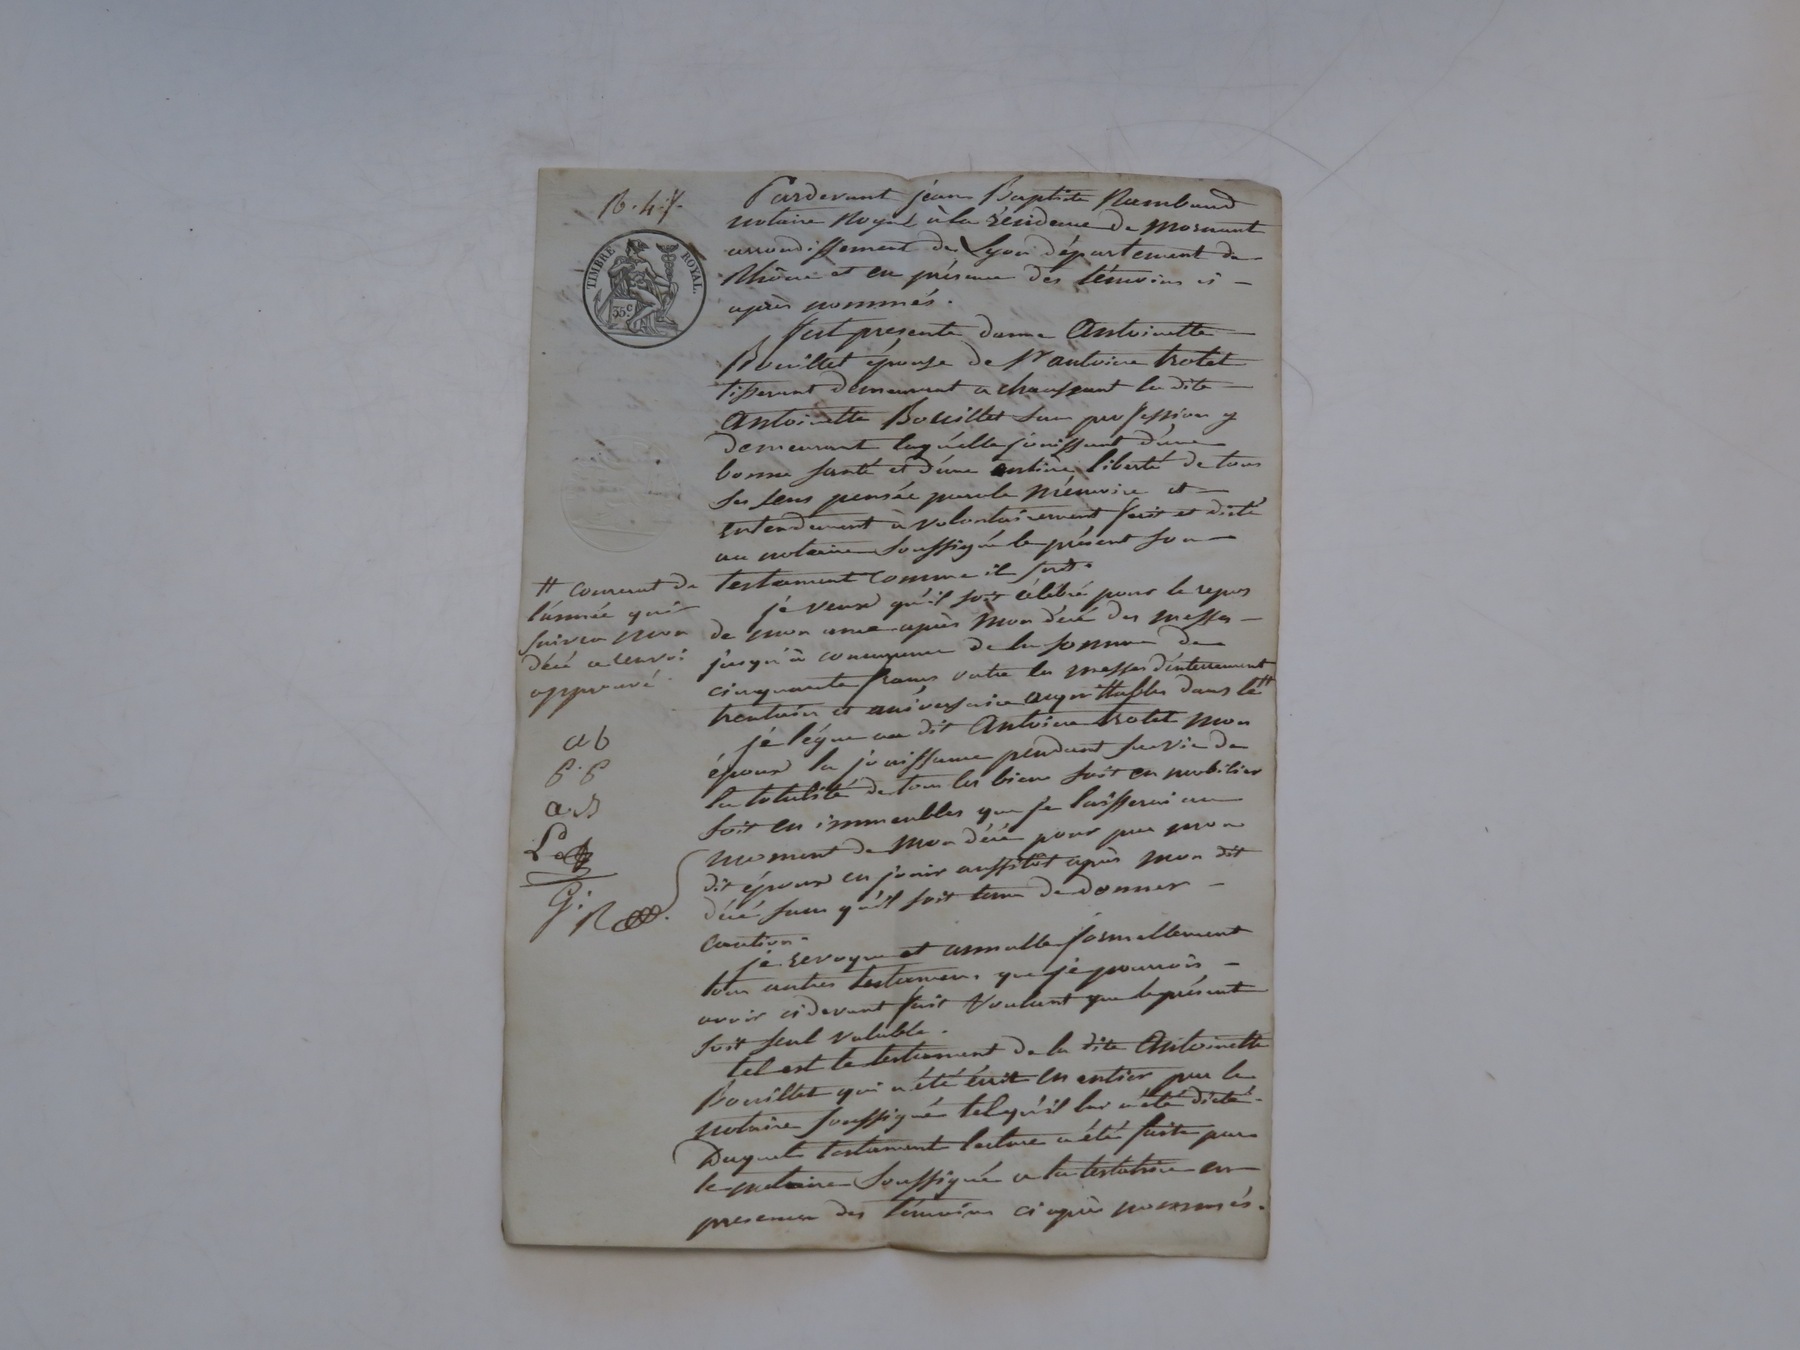 R. 47.
TIMBRE ROYAL.
35c
Pardevant jéan Baptiste Rambaud
notaire Royal à la résidence de Mornant
arrondissement de Lyon département du
Rhône et en présence des témoins ci –
après nommés.
fut presente dame Antoinette
Bouillet épouse de Sr antoine trotet
tisserant demeurant a chaussant la dite
Antoinette Bouillet san profession y
demeurant laquelle jouissant d'une
bonne santé et d'une entière liberté de tous
ses sens pensée parole Mémoire et –
entendement à volontairement fait et dicté
au notaire soussigné le présent son
testament comme il suit.
je veux qu'il soit célébré pour le repos
de mon ame après Mon décé des messes –
jusqu'à concurrence de la somme de
cinquante francs outre les messes d'enterrement
trentain et aniversaire acquittables dans le #
# courrant de
l'année qui
suivra mon
décé a renvoi
approuvé.
je légue au dit Antoine trotet Mon
époux la jouissance pendant sa vie de
la totalité de tous les biens soit en mobilier
soit en immeubles que je laisserai au
moment de Mon décé pour par mon
dit époux en jouir aussitôt après mon dit
décé sans qu'il soit tenu de donner –
caution.
a b
P. P
a. B
G.
R
je revoque et annulle formellement
tous autres testamens que je pourrois –
avoir cidevant fait Voulant que le présent
soit seul valable.
tel est le testament de la dite Antoinette
Bouillet qui a été écrit en entier par le
notaire soussigné tel qu'il lui a été dicté.
Duquel testament lecture a été faite par
le notaire soussigné a la testatrice en
presence des témoins ci après nommés.